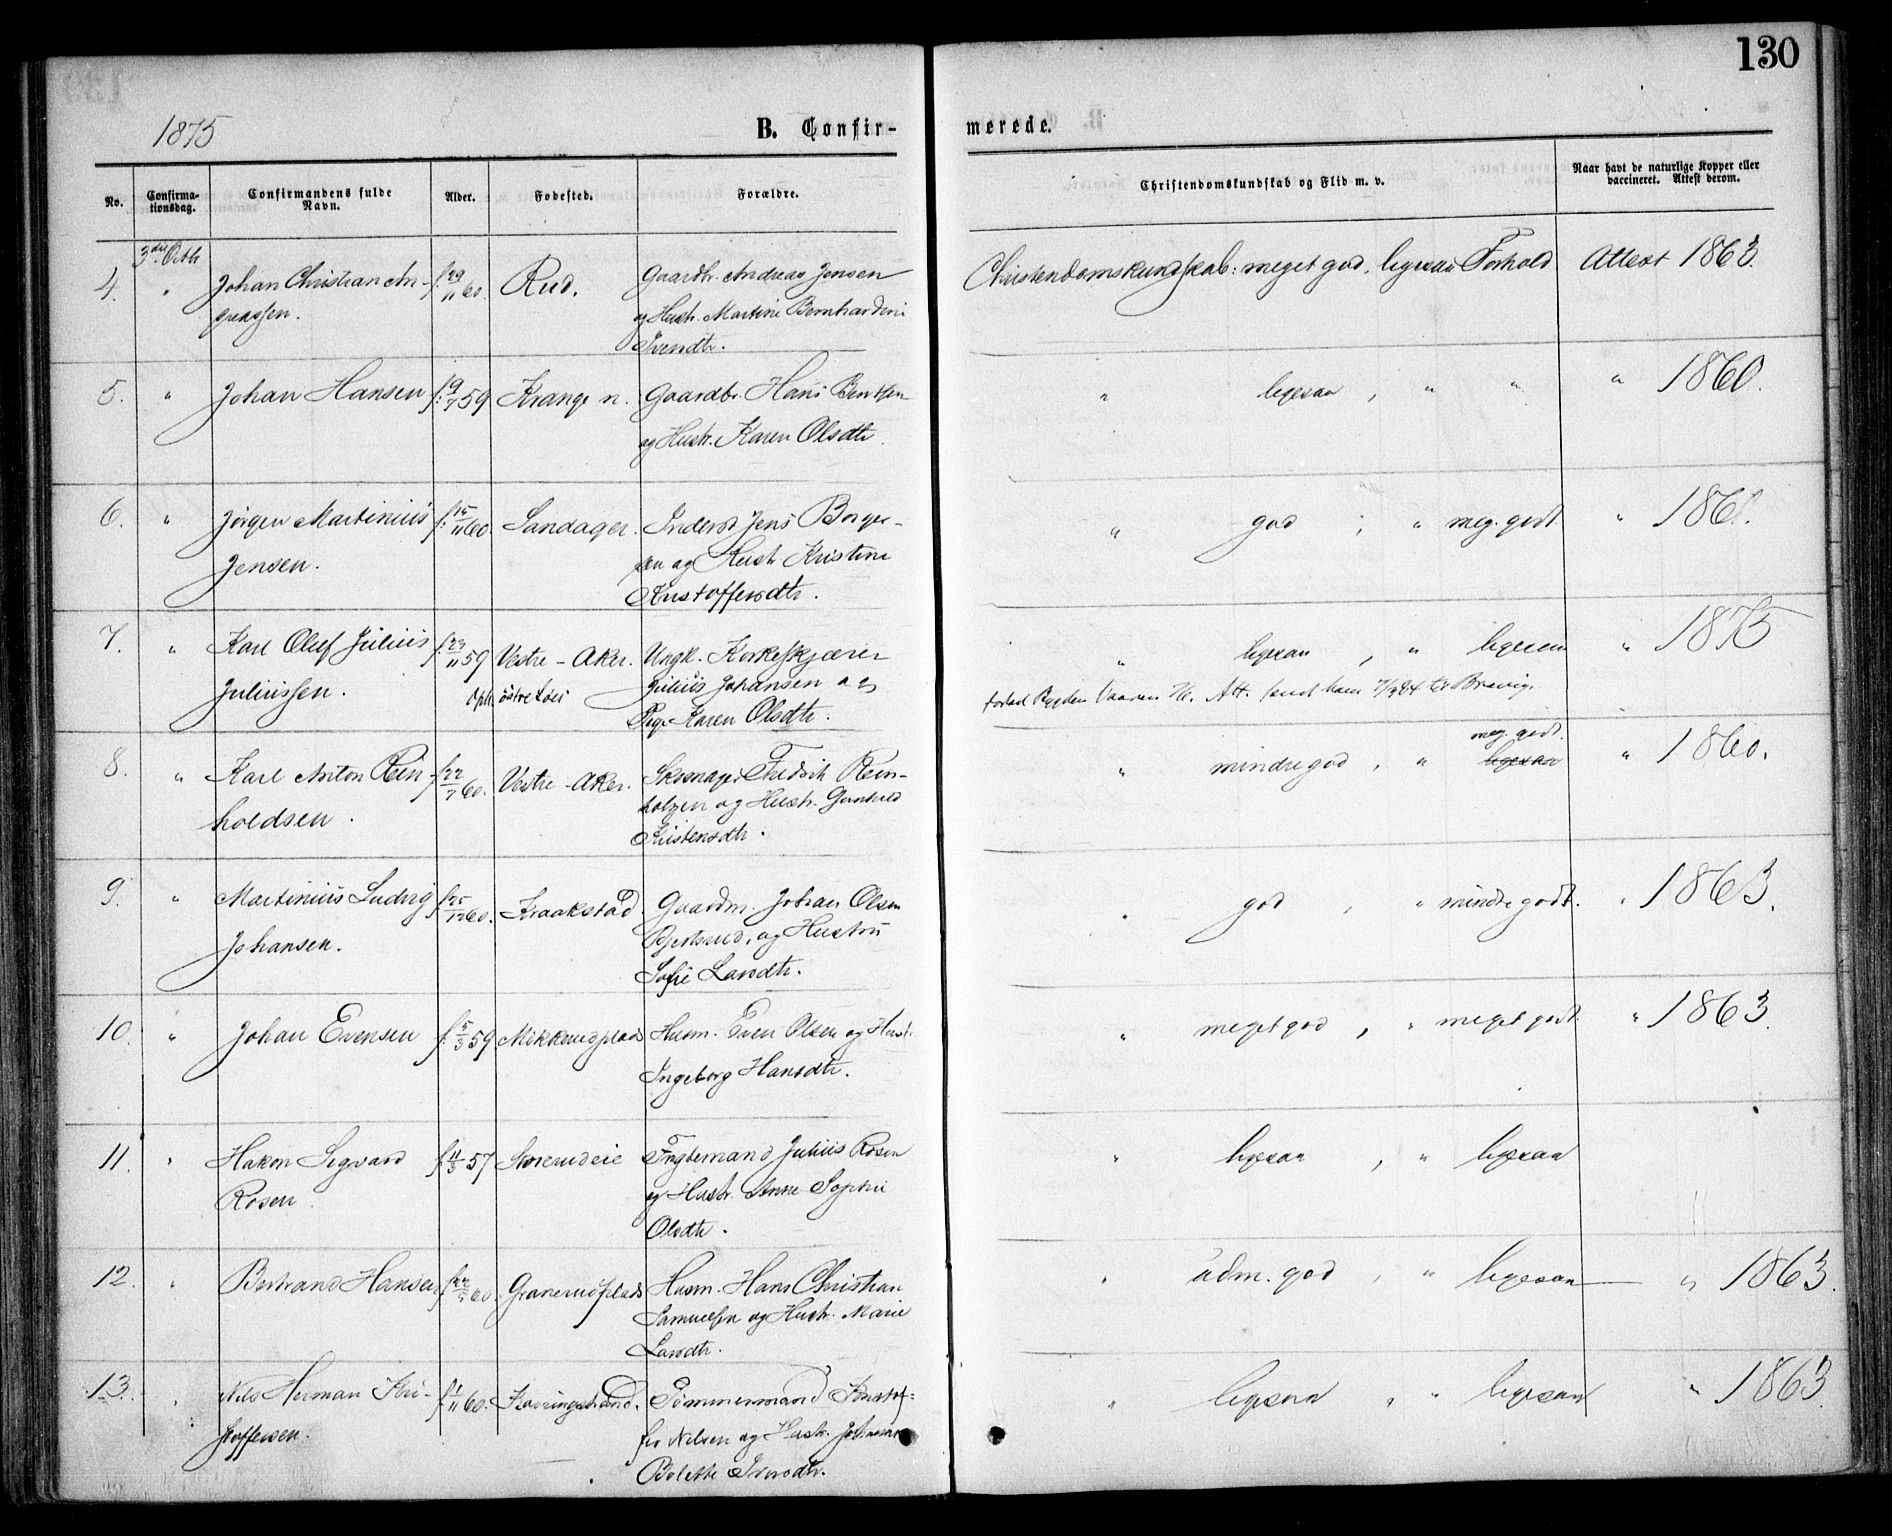 130
1875
B. Confirmerede.
No.
Confirmationsdag.
Confirmandens fulde Navn.
Alder.
Fødested.
Forældre.
Christendomskundskab og Flid m. v.
Naar havt de naturlige Kopper eller vaccineret. Attest derom.
3die Octbr
4. " Johan Christian An- f. 29/11 60. Rud. Gaardbr. Andreas Jensen Christendomskundskab: meget god, ligesaa Forhold Attest 1863.
dreassen. og Hustr. Martine Bernhardine
Svendtr.
5. " Johan Hansen f. 19/7 59 Krange n. Gaardbr. Hans Bentsen " ligesaa , " " " 1860.
og Hustr. Karen Olsdtr.
6. " Jørgen Martinius f. 15/11 60. Sandager. Inderst Jens Borger- " god ; " meg. godt. " 1861.
Jensen. sen og Hustr. Kristine
Kristoffersdtr.
7. " Karl Oluf Julius f. 23/11 59 Vestre-Aker. Ungk. Korkeskjærer " ligesaa , " ligesaa " 1875
Juliussen. Oph. østre Julius Johansen og
Pige Karen Olsdtr.
Att. sendt ham til Brevig.
8. " Karl Anton Rein- f. 22/7 60. Vestre-Aker. Skomager Fredrik Rein- " mindre god , " meg. godt. ligesaa " 1860.
holdsen. holzen og Hustr. Gunhild
Kristensdtr.
9. " Martinius Ludvig f. 25/12 60. Kraakstad. Gaardm. Johan Olsen " god , " mindre godt. " 1863.
Johansen. og Hustru
Sofie Larsdtr.
10. " Johan Evensen f. 5/3 59. Mikkerudplads Husm. Even Olsen og Hustr. " meget god , " meget godt. " 1863.
Ingeborg Hansdtr.
11. " Hakon Sigvard f. 11/3 57 Støxrudeie Tugtemand Julius Rosen " ligesaa , " ligesaa
Rosen. og Hustr. Anne Sophie
Olsdtr.
12. " Bertrand Hansen f. 22/5 60. Granerudplads Husm. Hans Christian " udm. god , " ligesaa " 1863.
Samuelsen og Hustr. Marie
Larsdtr.
13. " Nils Herman Kri- f. 1/11 60. Kavringstrand. Tømmermand Kristof- " ligesaa , " ligesaa " 1863.
stoffersen. fer Nilsen og Hustr. Johanne
Bolette Iversdtr.